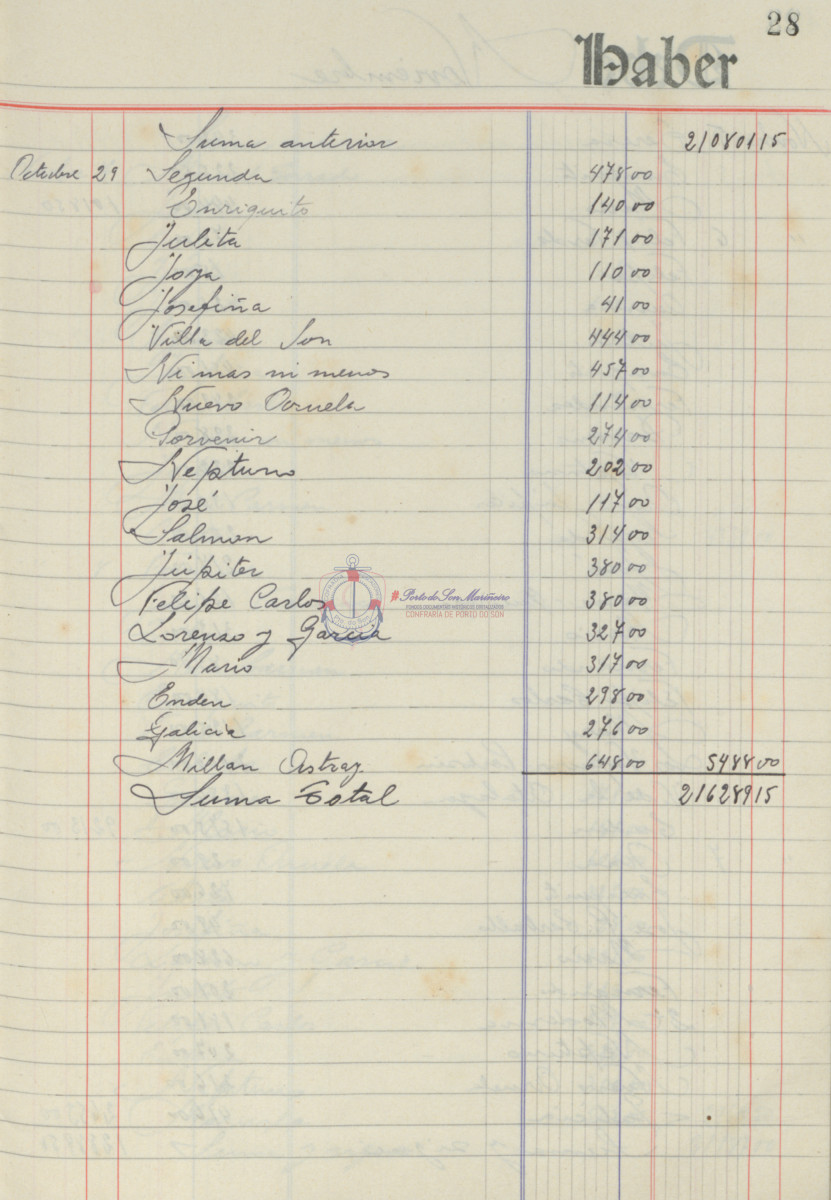 28
Haber
Suma anterior 21080115
Octubre 29 Segunda 478 00
Enriquito 140 00
Julita 171 00
Joya 110 00
Josefiña 41 00
Villa del Son 444 00
Ni mas ni menos 457 00
Nuevo Oruela 114 00
Porvenir 274 00
Neptuno 202 00
José 117 00
Salmon 314 00
Júpiter 380 00
Felipe Carlos 380 00
#Porto do Son Mariñeiro
CONFRARIA DE PORTO DO SON
Lorenzo y Garcia 327 00
Mario 317 00
Enden 298 00
Galicia 276 00
Millan Astray 648 00 5488 00
Suma Total 21628915